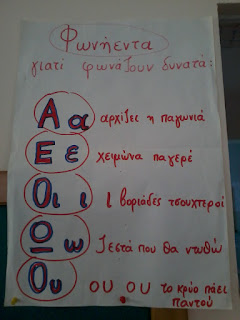 Φωνήεντα
γιατί φωνάζουν δυνατά:
Α α αρχίζει η παγωνιά
Ε ε χειμώνα παγερέ
Οι ι ι βοριάδες τσουχτεροί
Ω ω ζεστά που θα ντυθώ
Ου ου ου το κρύο πάει
παντού